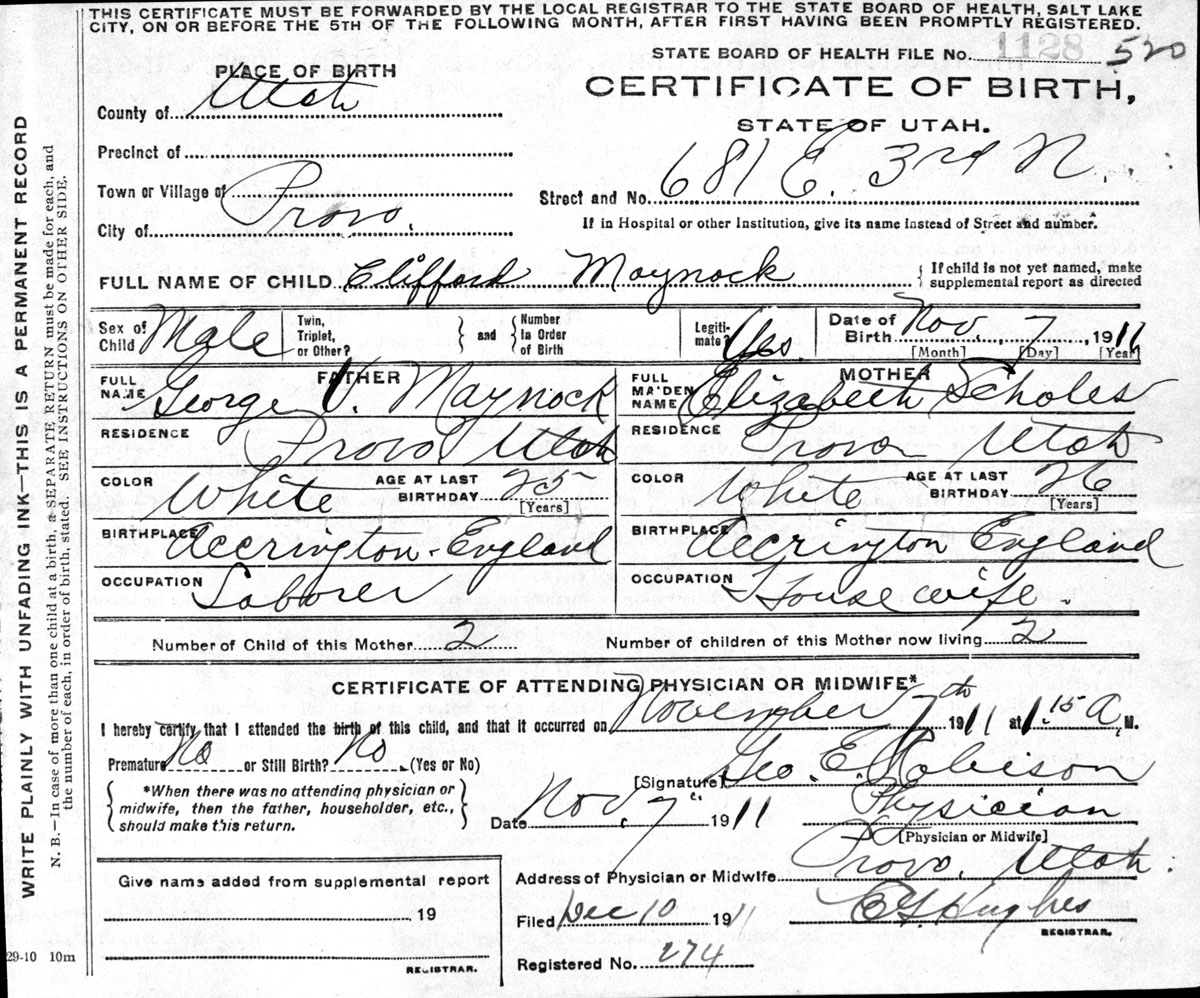 THIS CERTIFICATE MUST BE FORWARDED BY THE LOCAL REGISTRAR TO THE STATE BOARD OF HEALTH, SALT LAKE
CITY, ON OR BEFORE THE 5TH OF THE FOLLOWING MONTH, AFTER FIRST HAVING BEEN PROMPTLY REGISTERED.
STATE BOARD OF HEALTH FILE No. 1128 520
PLACE OF BIRTH
CERTIFICATE OF BIRTH,
STATE OF UTAH.
County of Utah
Precinct of
Town or Village of
City of Provo.
Street and No. 681 E. 3rd N.
If in Hospital or other Institution, give its name instead of Street and number.
FULL NAME OF CHILD Clifford Maynock
If child is not yet named, make
supplemental report as directed
Sex of Child Male
Twin, Triplet, or Other?
and
Number In Order of Birth
Legitimate? Yes.
Date of Birth Nov. 7, 1911
[Month] [Day] [Year]
FATHER
FULL NAME George V. Maynock
RESIDENCE Provo Utah
COLOR White AGE AT LAST BIRTHDAY 25 [Years]
BIRTHPLACE Accrington - England
OCCUPATION Laborer
MOTHER
FULL MAIDEN NAME Elizabeth Scholes
RESIDENCE Provo Utah
COLOR White AGE AT LAST BIRTHDAY 26 [Years]
BIRTHPLACE Accrington England
OCCUPATION Housewife.
Number of Child of this Mother 2 Number of children of this Mother now living 2
CERTIFICATE OF ATTENDING PHYSICIAN OR MIDWIFE*
I hereby certify that I attended the birth of this child, and that it occurred on November 7th 1911 at 1.15 A M.
Premature No or Still Birth? No (Yes or No)
*When there was no attending physician or
midwife, then the father, householder, etc.,
should make this return.
[Signature] Geo. E. Robison
Date Nov. 7 1911 Physician
[Physician or Midwife]
Address of Physician or Midwife Provo, Utah.
Give name added from supplemental report
19
REGISTRAR.
Filed Dec 10 1911 E G Hughes
REGISTRAR.
Registered No. 274
29-10 10m
WRITE PLAINLY WITH UNFADING INK—THIS IS A PERMANENT RECORD
N. B.—In case of more than one child at a birth, a SEPARATE RETURN must be made for each, and
the number of each, in order of birth, stated. SEE INSTRUCTIONS ON OTHER SIDE.